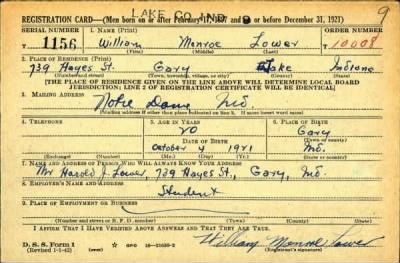 LAKE CO. IND. 9
REGISTRATION CARD—(Men born on or after February 17, 1897 and on or before December 31, 1921)
SERIAL NUMBER 1. NAME (Print) ORDER NUMBER
1156 William Monroe Lower 10008
(First) (Middle) (Last)
2. PLACE OF RESIDENCE (Print)
739 Hayes St. Gary Lake Indiana
(Number and street) (Town, township, village, or city) (County) (State)
[THE PLACE OF RESIDENCE GIVEN ON THE LINE ABOVE WILL DETERMINE LOCAL BOARD
JURISDICTION; LINE 2 OF REGISTRATION CERTIFICATE WILL BE IDENTICAL]
3. MAILING ADDRESS
Notre Dame Ind.
[Mailing address if other than place indicated on line 2. If same insert word same]
4. TELEPHONE 5. AGE IN YEARS 6. PLACE OF BIRTH
20 Gary
DATE OF BIRTH (Town or county)
October 4 1921 Ind.
(Exchange) (Number) (Mo.) (Day) (Yr.) (State or country)
7. NAME AND ADDRESS OF PERSON WHO WILL ALWAYS KNOW YOUR ADDRESS
Mr Harold J. Lower, 739 Hayes St., Gary, Ind.
8. EMPLOYER'S NAME AND ADDRESS
Student
9. PLACE OF EMPLOYMENT OR BUSINESS
(Number and street or R. F. D. number) (Town) (County) (State)
I AFFIRM THAT I HAVE VERIFIED ABOVE ANSWERS AND THAT THEY ARE TRUE.
D. S. S. Form 1
(Revised 1-1-42) GPO 16—21630-2 William Monroe Lower
(Registrant's signature)